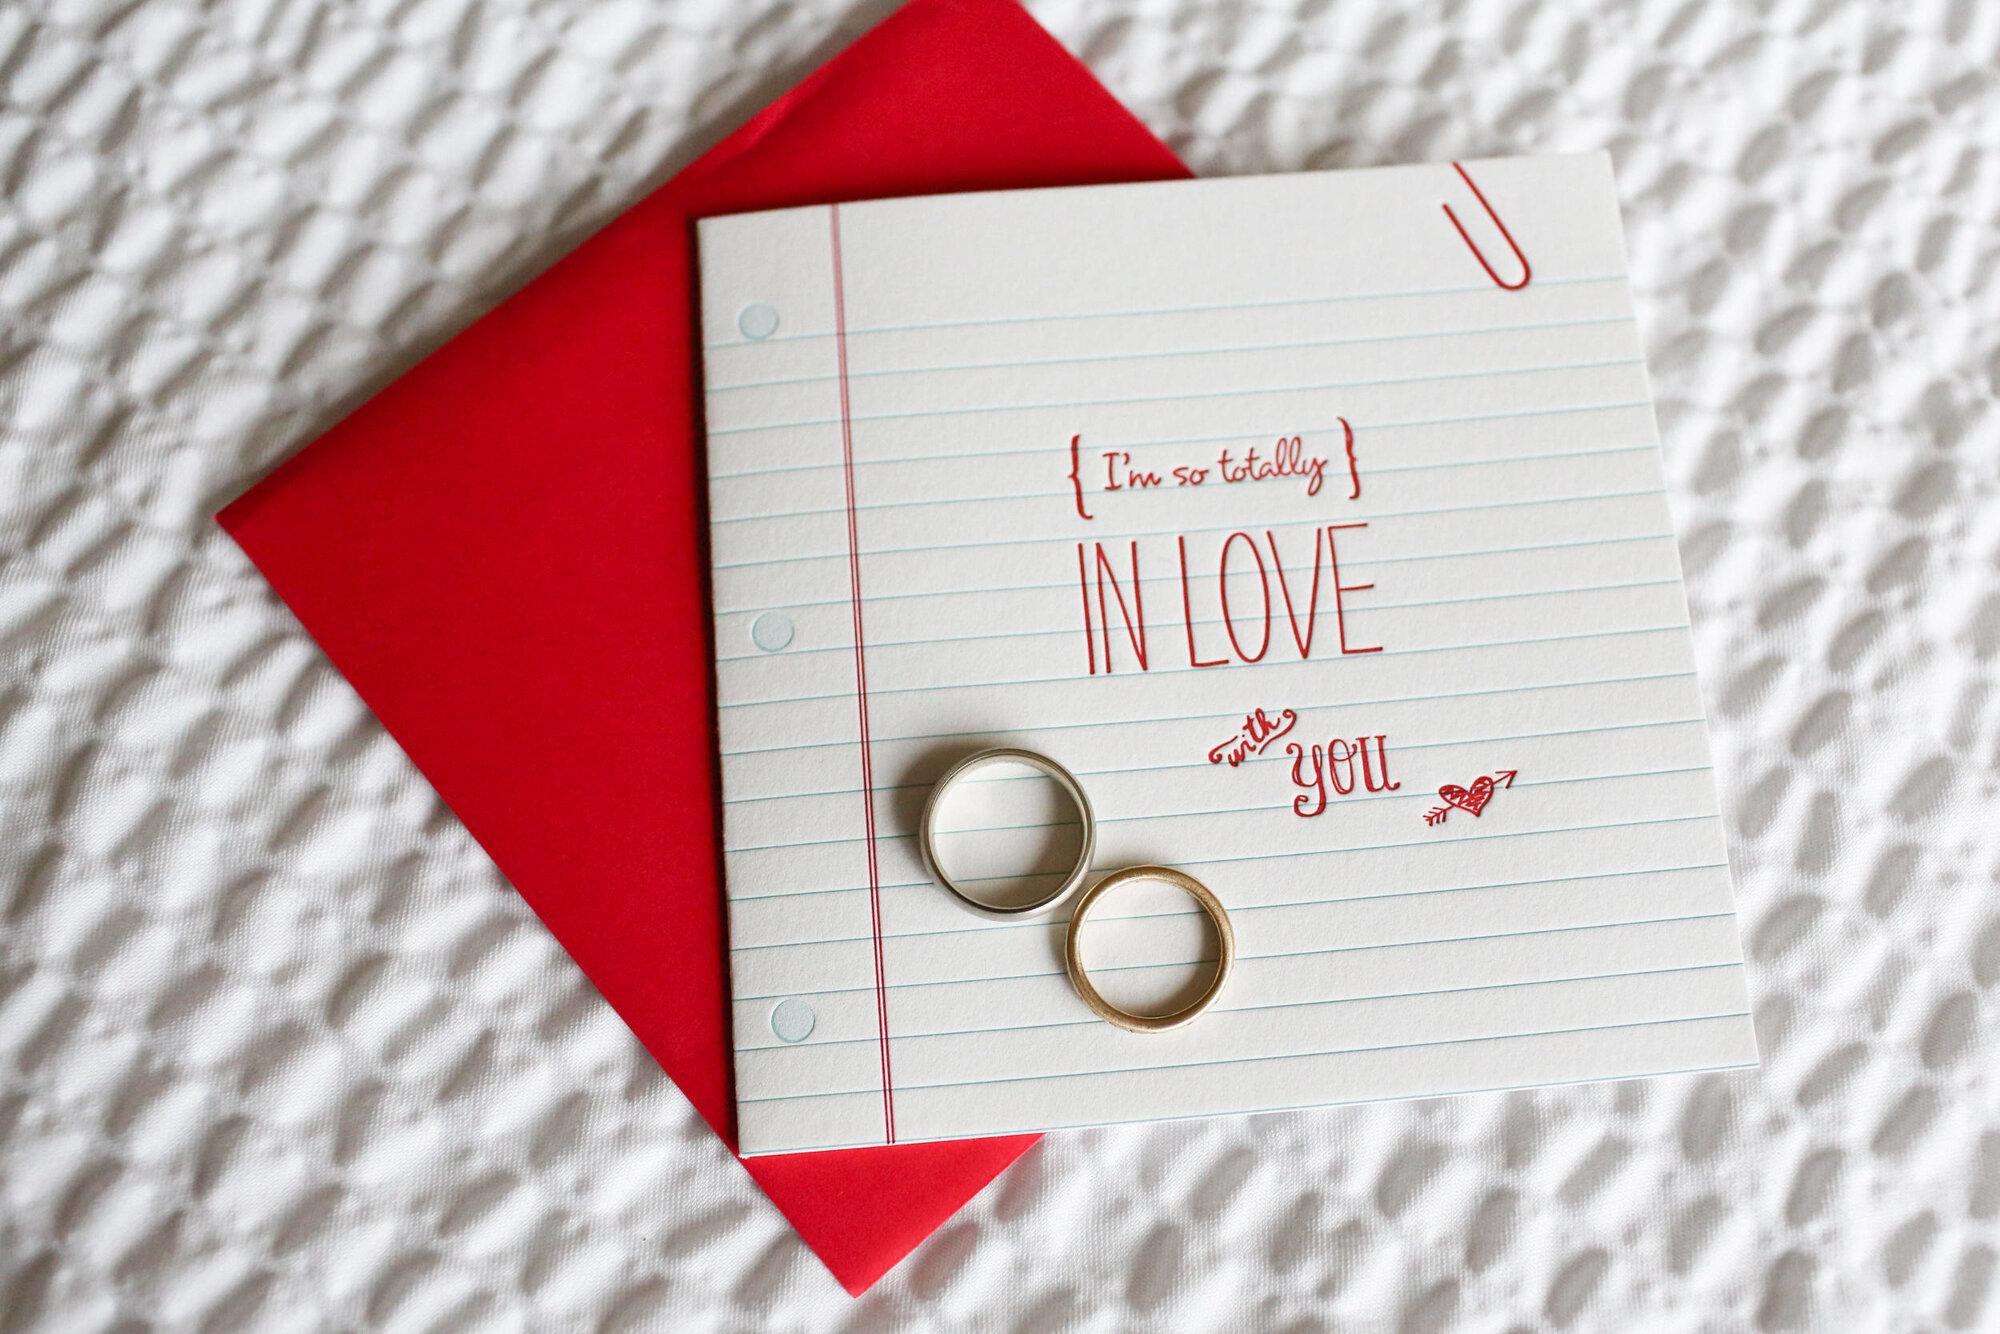 { I'm so totally }
IN LOVE
with you